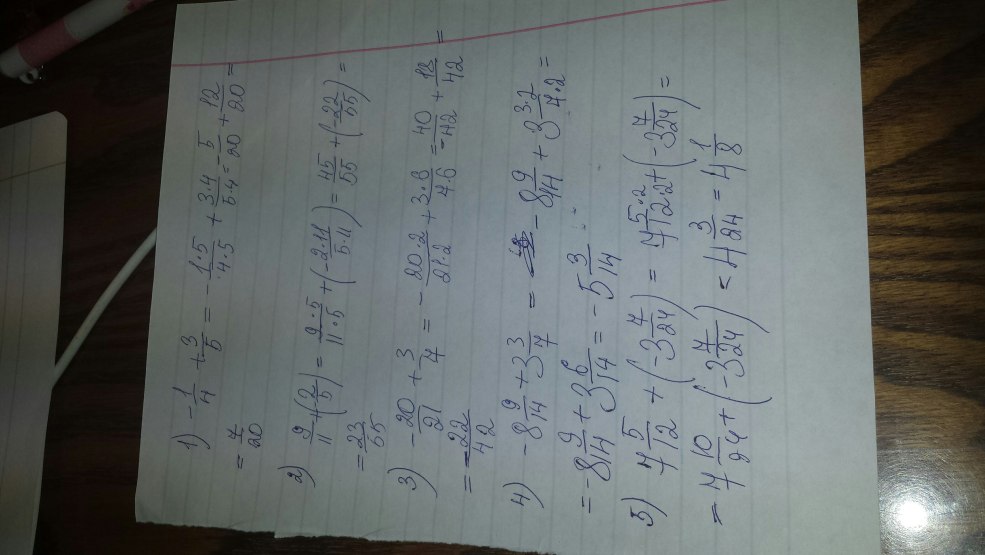 1) -1/4 + 3/5 = - 1·5/4·5 + 3·4/5·4 = - 5/20 + 12/20 =
= 7/20
2) 9/11 + (- 2/5) = 9·5/11·5 + (- 2·11/5·11) = 45/55 + (- 22/55) =
= 23/55
3) - 20/21 + 3/7 = - 20·2/21·2 + 3·6/7·6 = - 40/42 + 18/42 =
= - 22/42
4) - 8 9/14 + 3 3/7 = - 8 9/14 + 3 3·2/7·2 =
= - 8 9/14 + 3 6/14 = - 5 3/14
5) 7 5/12 + (- 3 7/24) = 7 5·2/12·2 + (- 3 7/24) =
= 7 10/24 + (- 3 7/24) = 4 3/24 = 4 1/8